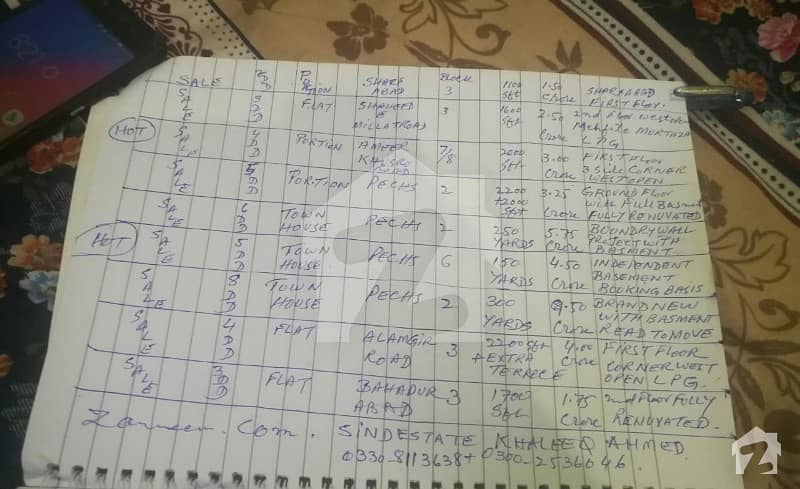 SALE 2 DD PORTION SHARFABAD BLOCK 3 1100 Sft 1.50 Crore SHARFABAD FIRST FLOOR.
SALE 3 DD FLAT SHAHEED E MILLAT ROAD 3 1600 Sft 2.50 Crore 2nd floor westopen Mehfil-e MURTAZA LPG
HOT SALE 4 DD PORTION AMEER KHUSRO ROAD 7/8 2000 Sft 3.00 Crore FIRST FLOOR 3 side CORNER WEST OPEN
SALE 5 DD PORTION PECHS 2 2200 +2000 Sft 3.25 Crore GROUND FLOOR with Full Basment FULLY RENUVATED
SALE 6 DD TOWN HOUSE PECHS 2 250 YARDS 5.75 Crore BOUNDRYWALL PROJECT WITH BASMENT
HOT SALE 5 DD TOWN HOUSE PECHS 6 150 YARDS 4.50 Crore INDEPENDENT BASEMENT BOOKING BASIS
SALE 8 DD TOWN HOUSE PECHS 2 300 YARDS .50 Crore BRAND NEW WITH BASMENT READ TO MOVE
SALE 4 DD FLAT ALAMGIR ROAD 3 2200 Sft + EXTRA TERRECE 4.00 Crore FIRST FLOOR CORNER WEST OPEN LPG.
SALE 3 DD FLAT BAHADUR ABAD 3 1700 Sft 1.75 Crore 2nd Floor FULLY RENUVATED.
Zameen.Com. SINDESTATE KHALEEQ AHMED.
0330-8113638+ 0300-2536046.
8:21